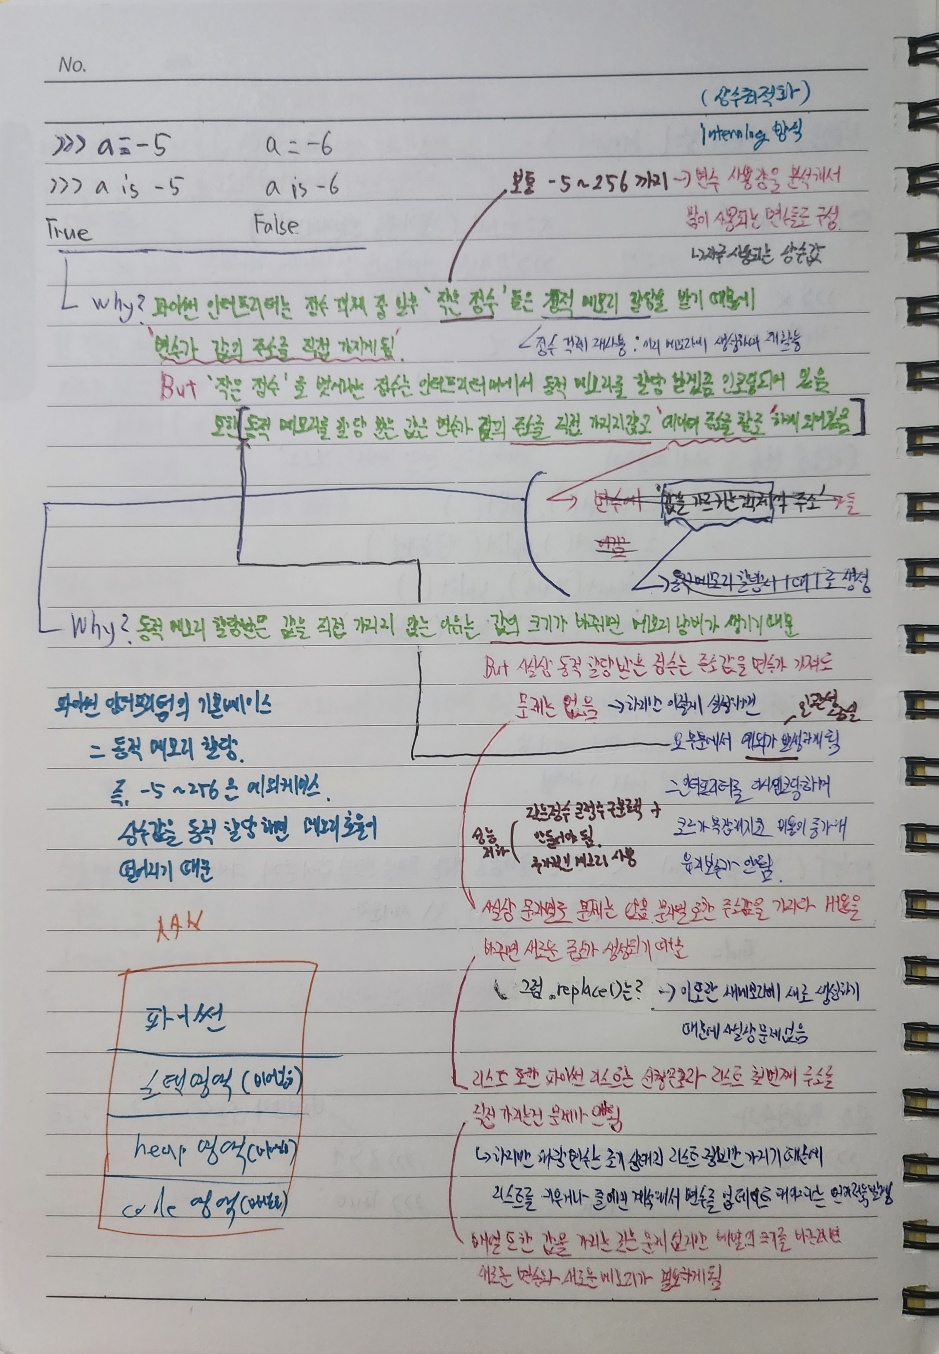 No.
(상수최적화)
Interning 방식
>>> a = -5 a = -6
>>> a is -5 a is -6
True False
보통 -5 ~ 256 까지 → 변수 사용량을 분석해서
많이 사용되는 변수들로 구성
↳ 자주 사용되는 상수값
Why? 파이썬 인터프리터는 정수 객체 중 일부 '작은 정수' 들은 정적 메모리 할당을 받기 때문에
'변수가 값의 주소를 직접 가지게 됨'
정수 객체 재사용 : 미리 메모리에 생성하여 재활용
But '작은 정수' 를 벗어나는 정수는 인터프리터내에서 동적 메모리를 할당 받게끔 인코딩되어 있음
또한 [동적 메모리를 할당 받는 값은 변수가 값의 주소를 직접 가지지않고 '데이터 주소를 참조' 하게 되어있음]
변수에 '값을 가르키는 객체의 주소'
→ 동적 메모리 할당시 1대1로 생성
Why? 동적 메모리 할당받은 값을 직접 가지지 않는 이유는 값의 크기가 바뀌면 메모리 낭비가 생기기 때문
But 사실상 동적 할당받은 정수는 주소값을 변수가 가져도
문제는 없음 → 하지만 이렇게 설정하면
일관성
요 부분에서 예외가 발생하게 됨
파이썬 인터프리텅의 기본베이스
= 동적 메모리 할당.
즉, -5 ~ 256 은 예외케이스.
상수값을 동적 할당하면 메모리효율이
떨어지기 때문
= 인터프리터를 다시인코딩하며
코드가 복잡해지고 비용이 증가해
유지보수가 안됨.
성능
저하
작은정수 큰정수 구분로직
만들어야 됨.
추가적인 메모리 사용
사실상 문자열도 문제는 없음 문자열 또한 주소값을 가지다 내용을
바뀌면 새로운 공간가 생성되기 때문
그럼 .replace()는? → 이또한 새메모리에 새로 생성하기
때문에 사실상 문제없음
리스트 또한 파이썬 리스트는 선형구조라 리스트 첫번째 주소를
직접 가지는건 문제가 안됨
↳ 하지만 해당 변수는 초기 상태의 리스트 정보만 가지기 때문에
배열 또한 값을 가지는 것은 문제 없지만 배열의 크기를 바꾸려면
새로운 변수와 새로운 메모리가 필요하게 됨
RAM
파이썬
스택영역 (메모리)
heap 영역 (메모리)
code 영역 (메모리)